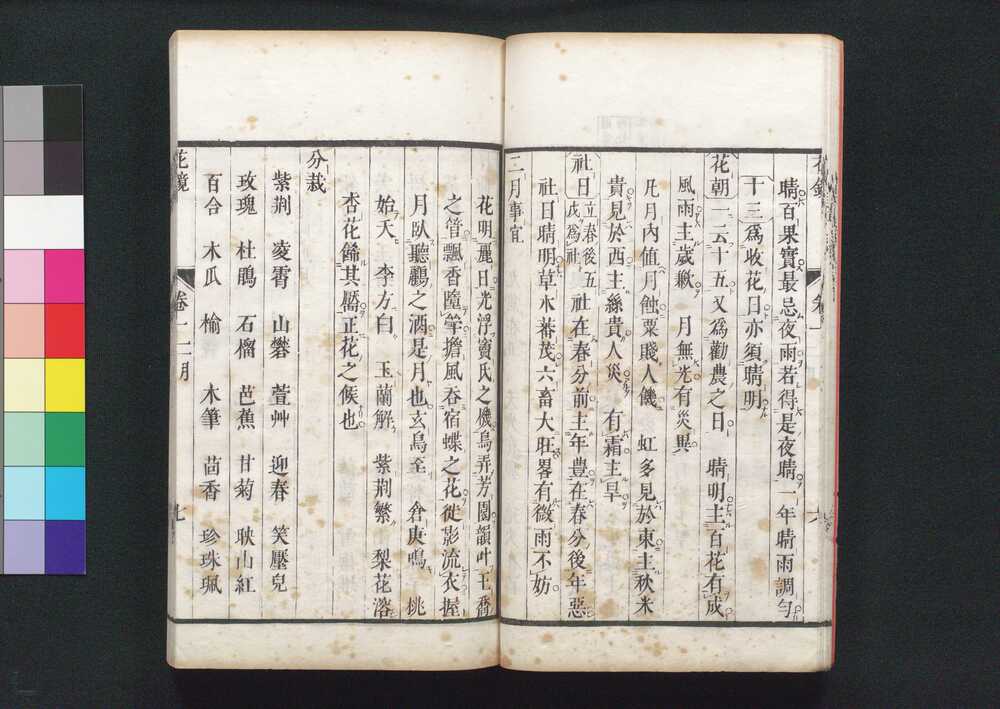 晴百果實最忌夜雨若得是夜晴一年晴雨調勻
十三爲收花日亦須晴明
花朝一云十五又爲勸農之日 晴明主百花有成
風雨主歲歉 月無光有災異
凡月內値月蝕粟賤人饑 虹多見於東主秋米
貴見於西主絲貴人災 有霜主旱
社日立春後五戊爲社 社在春分前主年豊在春分後年惡
社日晴明草木蕃茂六畜大旺畧有微雨不妨
二月事宜
花明麗日光浮竇氏之機鳥弄芳園韻叶王喬
之管飄香墮筭擔風吞宿蝶之花從影流衣握
月臥聽鸝之酒是月也玄鳥至 倉庚鳴 桃
始夭 李方白 玉蘭解 紫荆繁 梨花溶
杏花餙其靨正花之候也
分栽
紫荆 凌霄 山礬 萱艸 迎春 笑靨兒
玫瑰 杜鵑 石榴 芭蕉 甘菊 映山紅
百合 木瓜 榆 木筆 茴香 珍珠珮
花鏡 卷一 二月 七